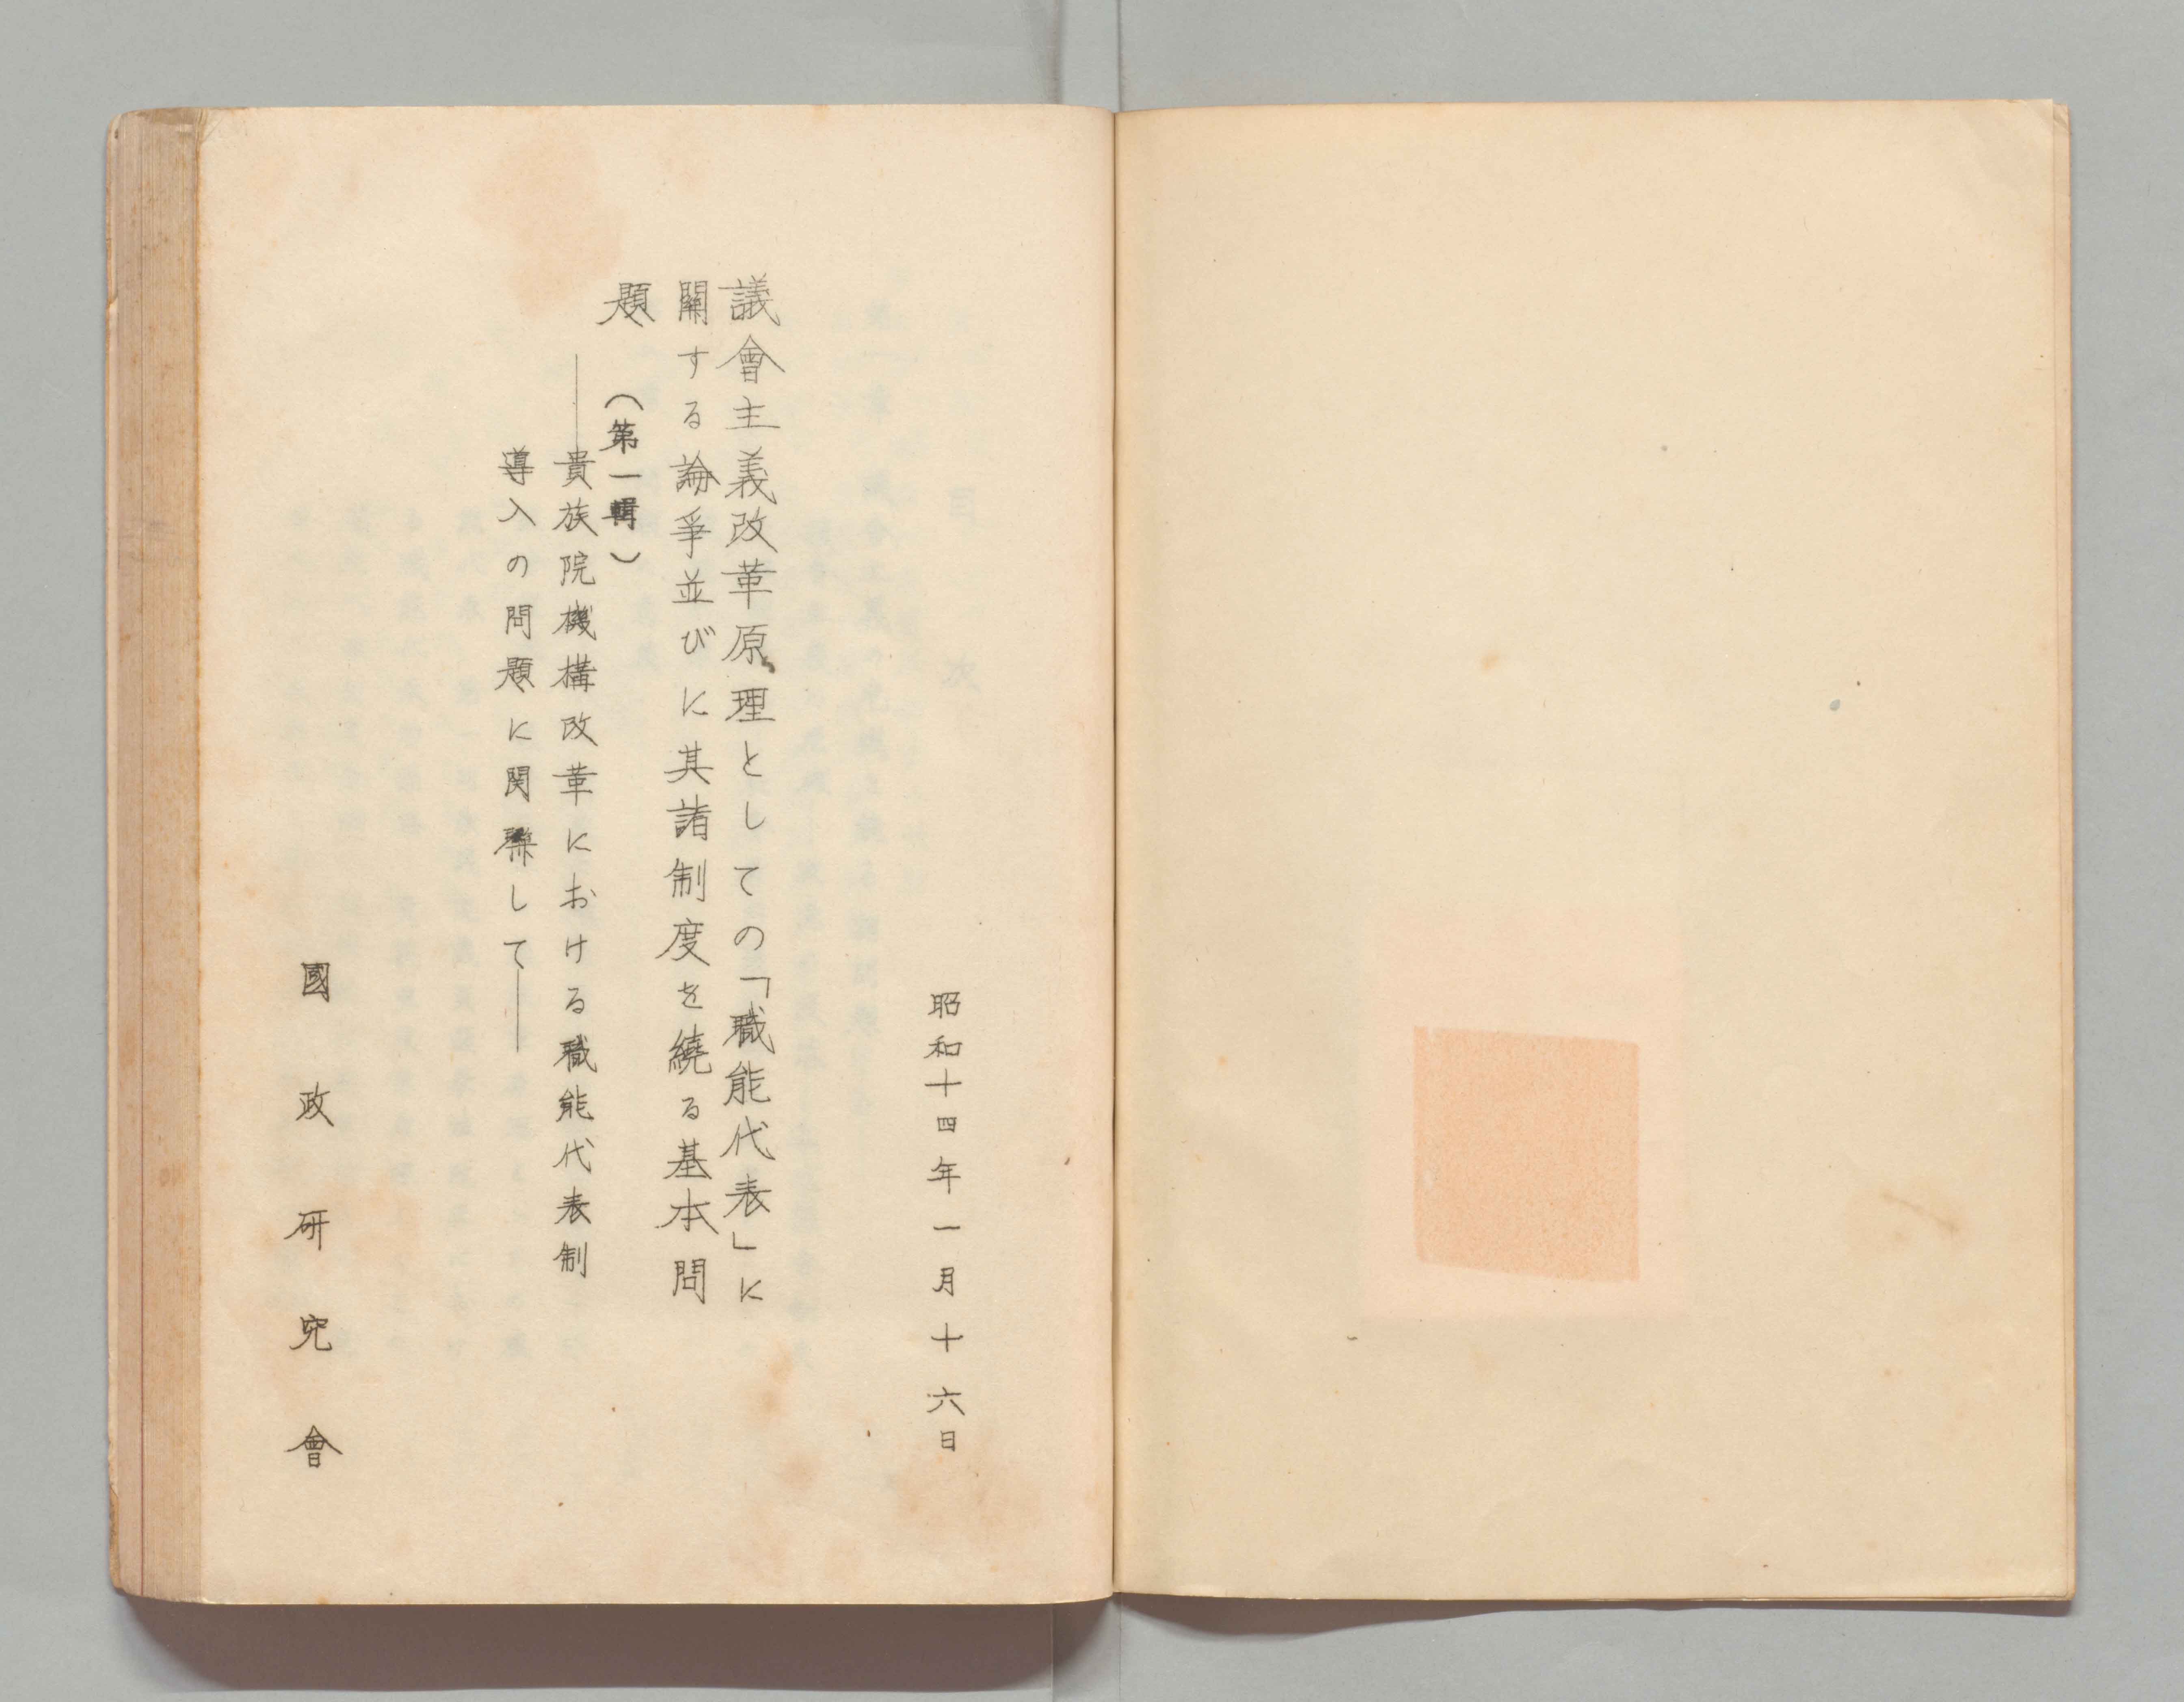 昭和十四年一月十六日
議會主義改革原理としての「職能代表」に
關する論爭並びに其諸制度を繞る基本問
題
（第一輯）
――貴族院機構改革における職能代表制
導入の問題に関聯して――
國政研究會